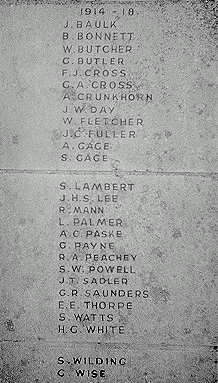 1914 - 18.
J. BAULK
B. BONNETT
W. BUTCHER
G. BUTLER
F. J. CROSS
G. A. CROSS
A. CRUNKHORN
J. W. DAY
W. FLETCHER
J. C. FULLER
A. GAGE
S. GAGE
S. LAMBERT
J. H. S. LEE
R. MANN
L. PALMER
A. C. PASKE
G. PAYNE
R. A. PEACHEY
S. W. POWELL
J. T. SADLER
G. R. SAUNDERS
E. E. THORPE
S. WATTS
H. G. WHITE
S. WILDING
G. WISE